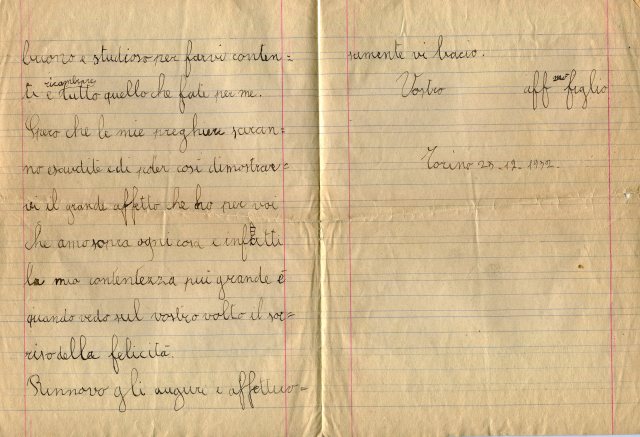 buono e studioso per farvi conten=
ricambiare
ti e tutto quello che fate per me.
Spero che le mie preghiere saran=
no esaudite e di poter così dimostrar=
vi il grande affetto che ho per voi
che amo sopra ogni cosa e infatti
la mia contentezza più grande è
quando vedo sul vostro volto il sor=
riso della felicità.
Rinnovo gli auguri e affettuo=
samente vi bacio.
Vostro aff.mo figlio
Torino 25-12-1932